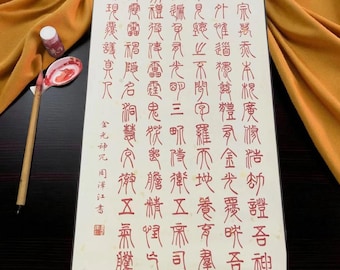 宗萬炁本根廣修浩劫證吾神
外惟道獨尊體有金光覆映吾
見聽之不聞包羅天地養育群
遍身有光明三界侍衛五帝司
禮役使雷霆鬼妖喪膽精怪亡
靂雷神隱名洞慧交徹五炁騰
現覆護真人
金光神咒 周澤江書